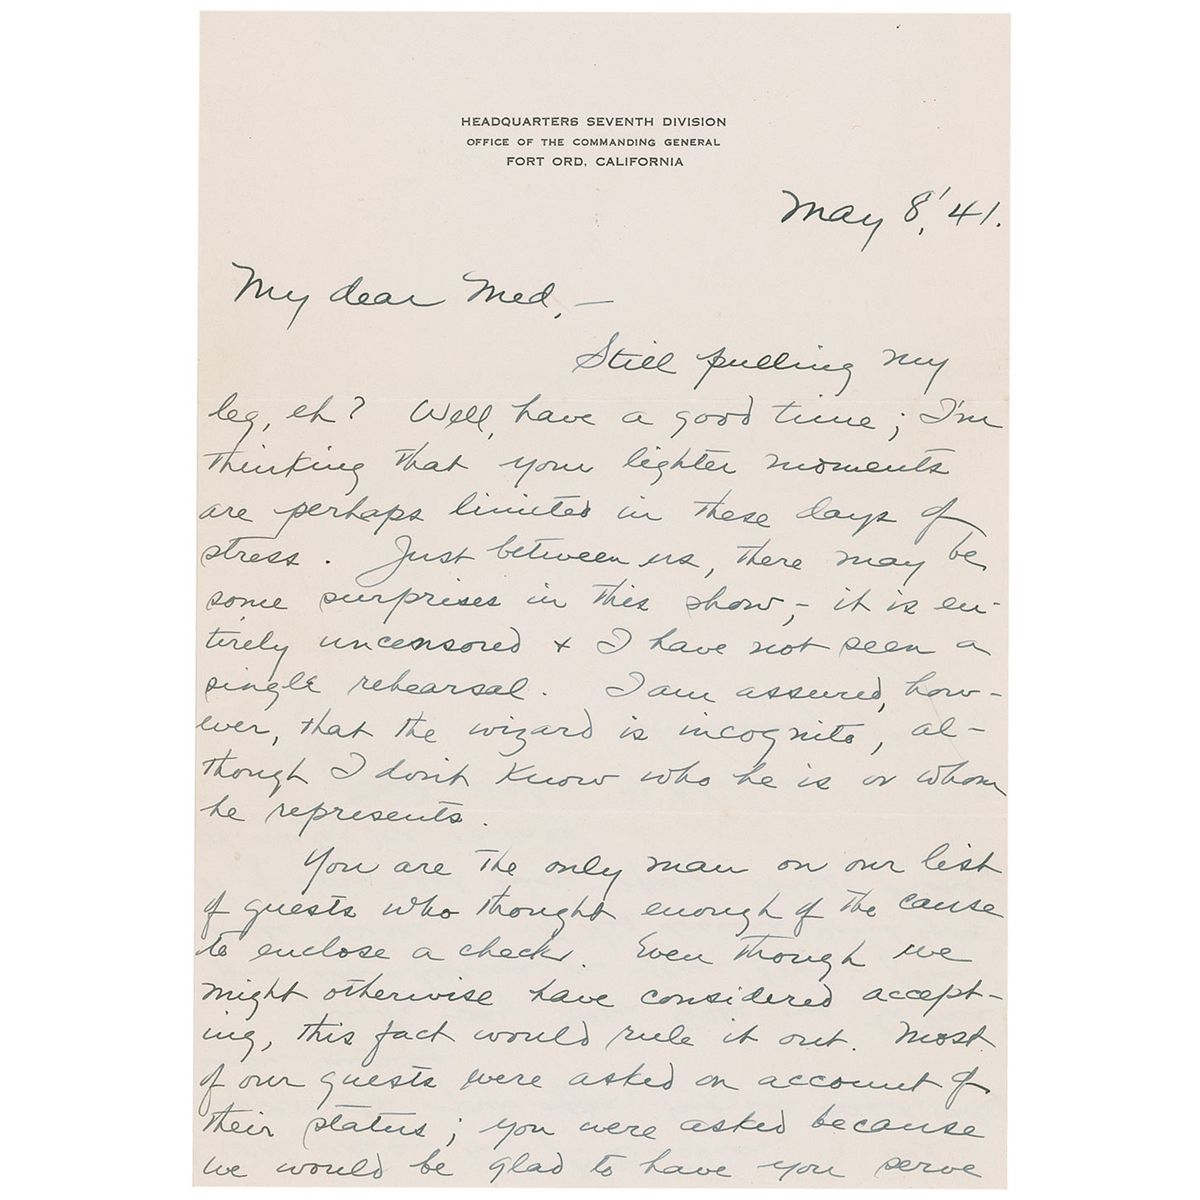 HEADQUARTERS SEVENTH DIVISION
OFFICE OF THE COMMANDING GENERAL
FORT ORD, CALIFORNIA
May 8, '41.
My dear Med, —
Still pulling my
leg, eh? Well, have a good time; I'm
thinking that your lighter moments
are perhaps limited in these days of
stress. Just between us, there may be
some surprises in this show, - it is en-
tirely uncensored + I have not seen a
single rehearsal. I am assured, how-
ever, that the wizard is incognito, al-
though I don't know who he is or whom
he represents.
You are the only man on our list
of guests who thought enough of the cause
to enclose a check. Even though we
might otherwise have considered accept-
ing, this fact would rule it out. Most
of our guests were asked on account of
their status; you were asked because
we would be glad to have you serve